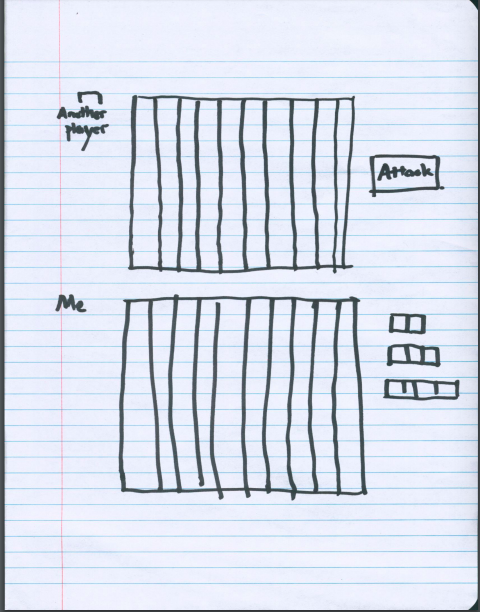 Another
player
Attack
Me